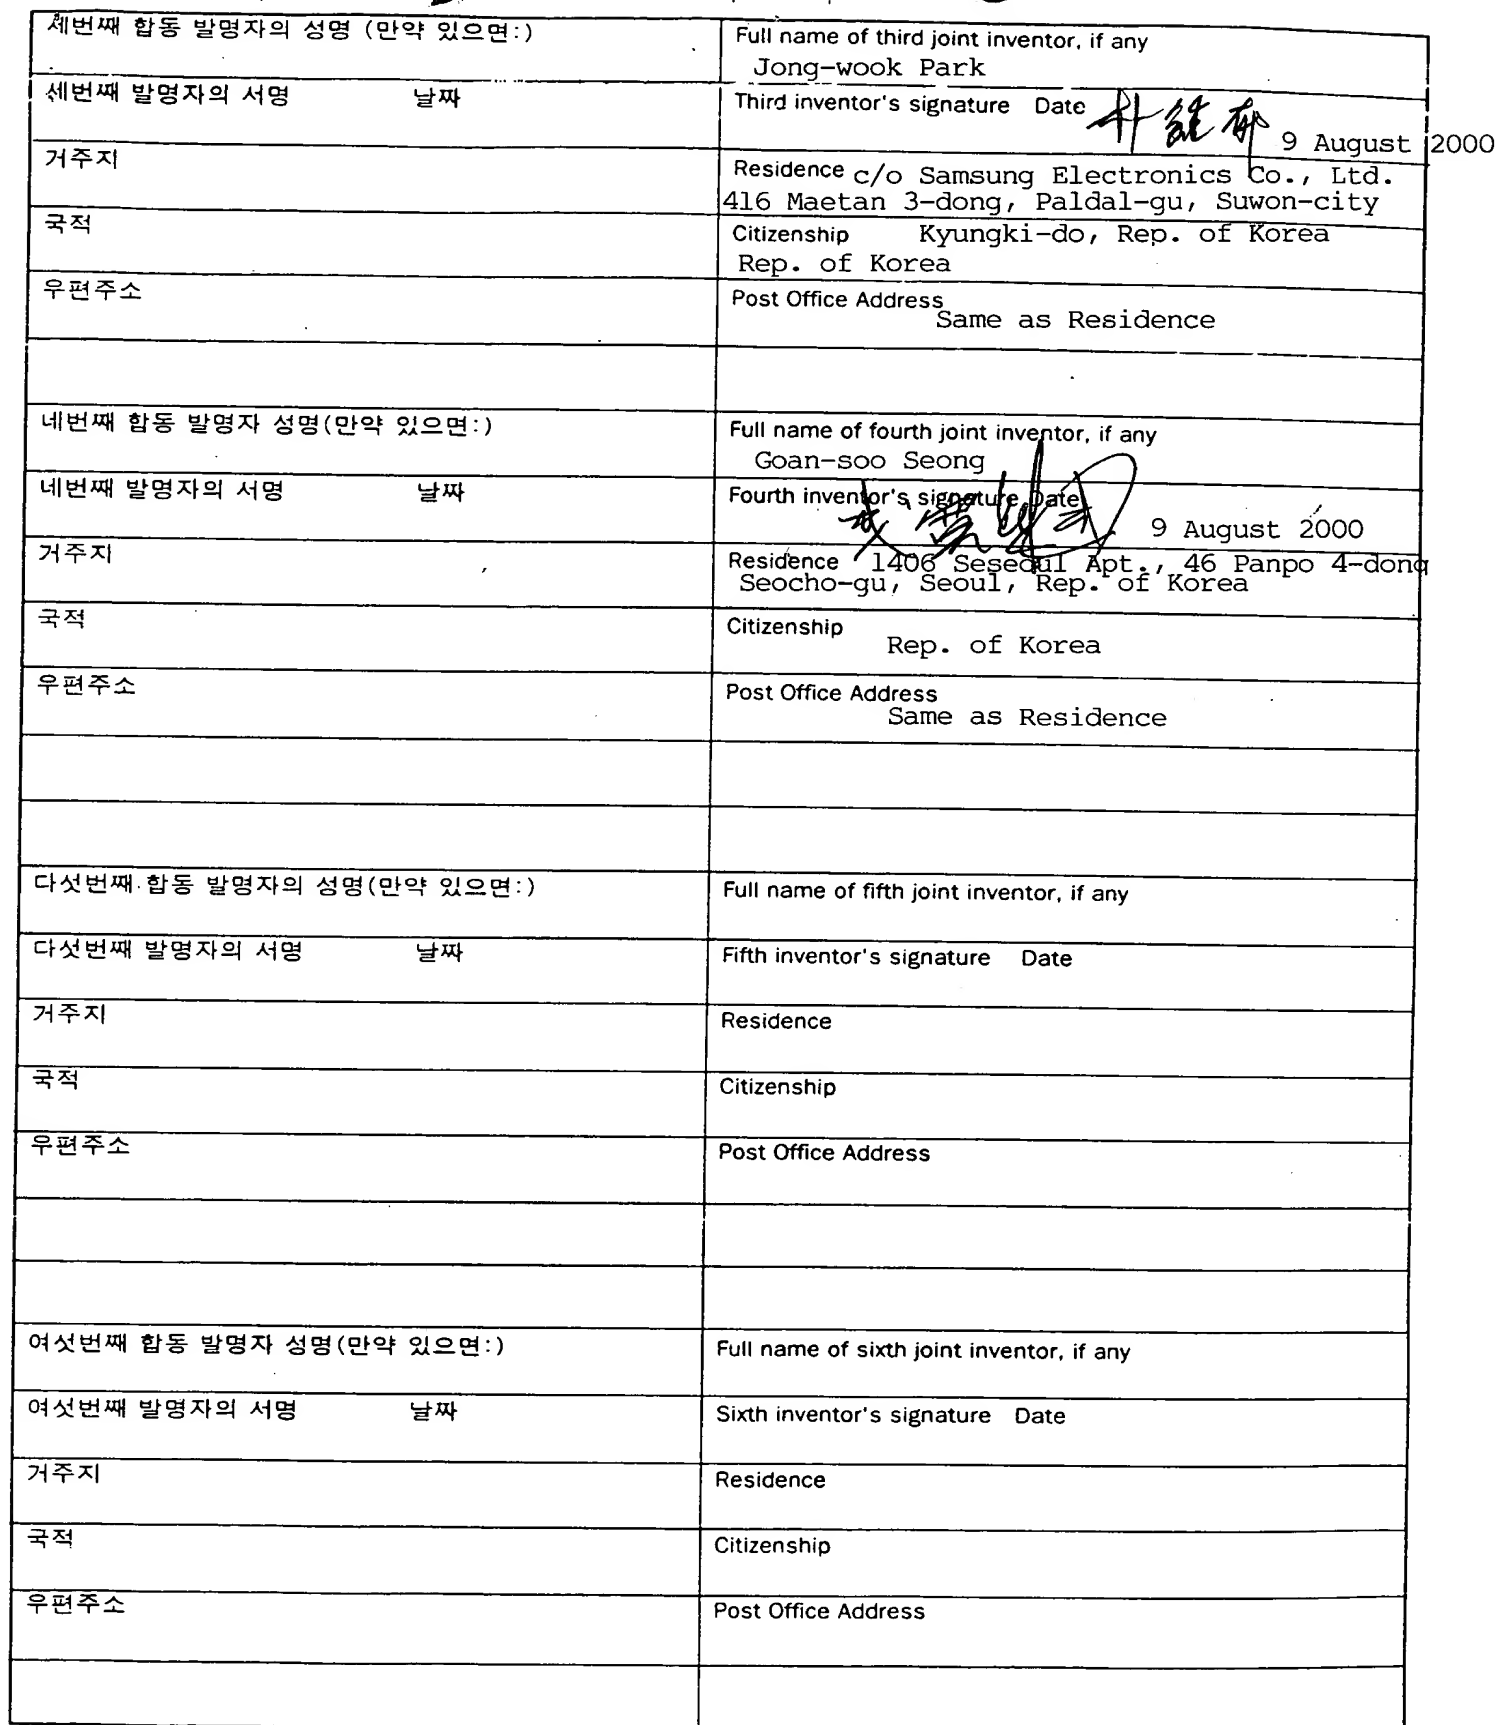 세번째 합동 발명자의 성명 (만약 있으면:)
Full name of third joint inventor, if any
Jong-wook Park
세번째 발명자의 서명 날짜
Third inventor's signature Date
9 August 2000
거주지
Residence c/o Samsung Electronics Co., Ltd.
416 Maetan 3-dong, Paldal-gu, Suwon-city
국적
Citizenship Kyungki-do, Rep. of Korea
Rep. of Korea
우편주소
Post Office Address
Same as Residence
네번째 합동 발명자 성명(만약 있으면:)
Full name of fourth joint inventor, if any
Goan-soo Seong
네번째 발명자의 서명 날짜
Fourth inventor's signature Date
9 August 2000
거주지
Residence 1406 Seseoul Apt., 46 Panpo 4-dong
Seocho-gu, Seoul, Rep. of Korea
국적
Citizenship
Rep. of Korea
우편주소
Post Office Address
Same as Residence
다섯번째 합동 발명자의 성명(만약 있으면:)
Full name of fifth joint inventor, if any
다섯번째 발명자의 서명 날짜
Fifth inventor's signature Date
거주지
Residence
국적
Citizenship
우편주소
Post Office Address
여섯번째 합동 발명자 성명(만약 있으면:)
Full name of sixth joint inventor, if any
여섯번째 발명자의 서명 날짜
Sixth inventor's signature Date
거주지
Residence
국적
Citizenship
우편주소
Post Office Address